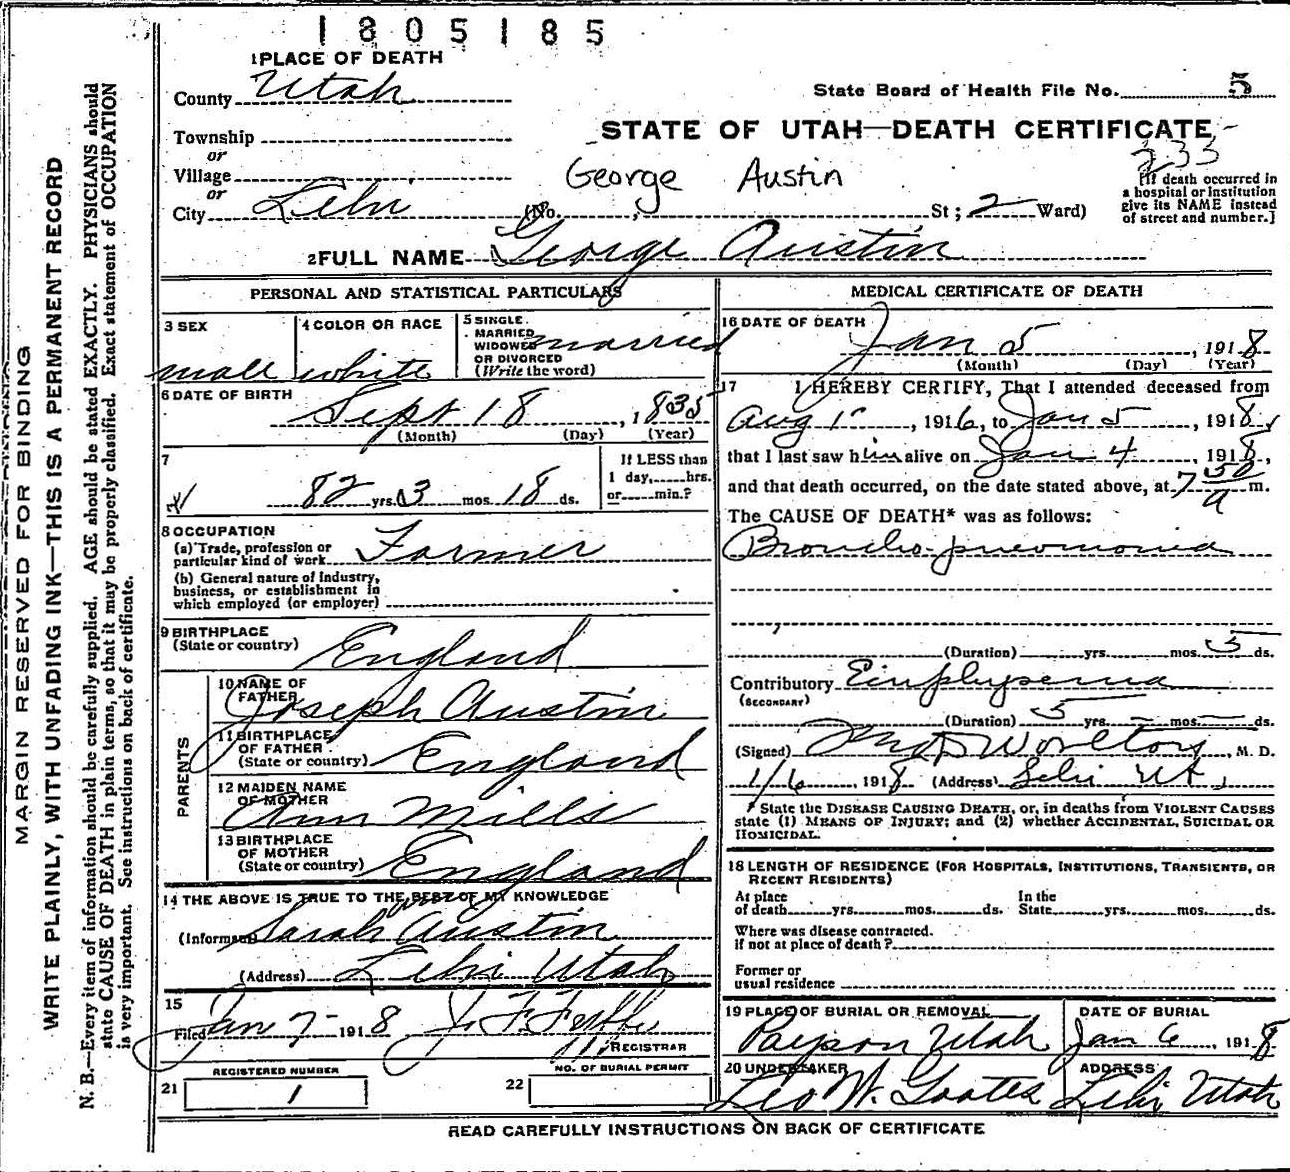 1805185
1 PLACE OF DEATH
County Utah
State Board of Health File No. 5
Township
or
STATE OF UTAH—DEATH CERTIFICATE
233
Village
or
George Austin
City Lehi (No. , St; 2 Ward)
[If death occurred in
a hospital or institution
give its NAME instead
of street and number.]
2 FULL NAME George Austin
PERSONAL AND STATISTICAL PARTICULARS
3 SEX
male
4 COLOR OR RACE
white
5 SINGLE
MARRIED
WIDOWED
OR DIVORCED
(Write the word)
married
6 DATE OF BIRTH
Sept 18, 1835
(Month) (Day) (Year)
7
82 yrs. 3 mos. 18 ds.
If LESS than
1 day,......hrs.
or......min.?
8 OCCUPATION
(a) Trade, profession or
particular kind of work Farmer
(b) General nature of Industry,
business, or establishment in
which employed (or employer)
9 BIRTHPLACE
(State or country) England
PARENTS
10 NAME OF
FATHER Joseph Austin
11 BIRTHPLACE
OF FATHER
(State or country) England
12 MAIDEN NAME
OF MOTHER Ann Mills
13 BIRTHPLACE
OF MOTHER
(State or country) England
14 THE ABOVE IS TRUE TO THE BEST OF MY KNOWLEDGE
(Informant) Sarah Austin
(Address) Lehi Utah
15
Filed Jan 7 1918 J. F.
REGISTRAR
21
REGISTERED NUMBER
1
22
NO. OF BURIAL PERMIT
MEDICAL CERTIFICATE OF DEATH
16 DATE OF DEATH
Jan 5, 1918
(Month) (Day) (Year)
17 I HEREBY CERTIFY, That I attended deceased from
Aug 1st, 1916, to Jan 5, 1918,
that I last saw him alive on Jan 4, 1918,
and that death occurred, on the date stated above, at 7 50 a m.
The CAUSE OF DEATH* was as follows:
Broncho-pneumonia
(Duration) yrs. mos. 5 ds.
Contributory Emphysema
(SECONDARY)
(Duration) 5 yrs. — mos. — ds.
(Signed) , M. D.
1/6, 1918 (Address) Lehi Ut
* State the DISEASE CAUSING DEATH, or, in deaths from VIOLENT CAUSES
state (1) MEANS OF INJURY; and (2) whether ACCIDENTAL, SUICIDAL OR
HOMICIDAL.
18 LENGTH OF RESIDENCE (FOR HOSPITALS, INSTITUTIONS, TRANSIENTS, OR
RECENT RESIDENTS)
At place
of death......yrs......mos......ds.
In the
State......yrs......mos......ds.
Where was disease contracted.
if not at place of death?
Former or
usual residence
19 PLACE OF BURIAL OR REMOVAL
Payson Utah
DATE OF BURIAL
Jan 6, 1918
20 UNDERTAKER
Leo W. Goates
ADDRESS
Lehi Utah
READ CAREFULLY INSTRUCTIONS ON BACK OF CERTIFICATE
MARGIN RESERVED FOR BINDING
WRITE PLAINLY, WITH UNFADING INK—THIS IS A PERMANENT RECORD
N. B.—Every item of information should be carefully supplied. AGE should be stated EXACTLY. PHYSICIANS should
state CAUSE OF DEATH in plain terms, so that it may be properly classified. Exact statement of OCCUPATION
is very important. See instructions on back of certificate.